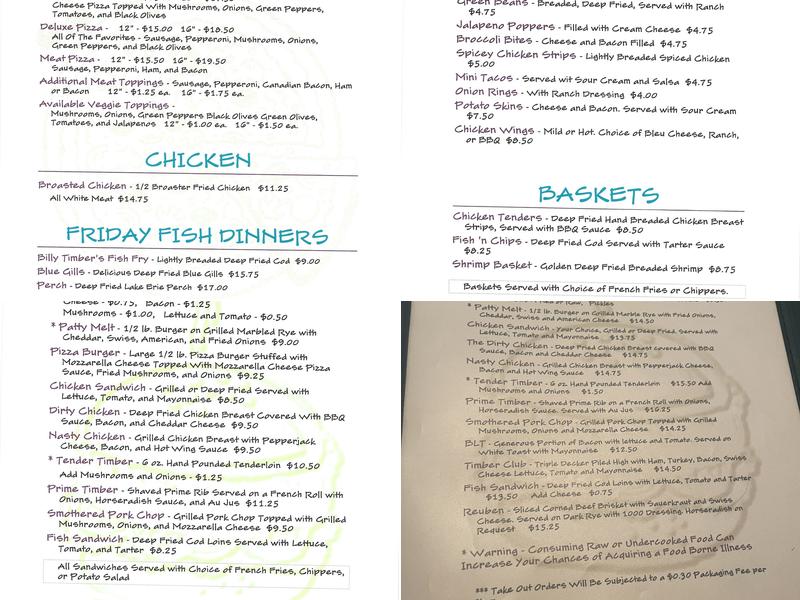 Cheese Pizza Topped With Mushrooms, Onions, Green Peppers,
Tomatoes, and Black Olives
Deluxe Pizza - 12" - $15.00 16" -$18.50
All Of The Favorites - Sausage, Pepperoni, Mushrooms, Onions,
Green Peppers, and Black Olives
Meat Pizza - 12" - $15.50 16" -$19.50
Sausage, Pepperoni, Ham, and Bacon
Additional Meat Toppings - Sausage, Pepperoni, Canadian Bacon, Ham
or Bacon 12" - $1.25 ea. 16" - $1.75 ea.
Available Veggie Toppings -
Mushrooms, Onions, Green Peppers Black Olives Green Olives,
Tomatoes, and Jalapenos 12" - $1.00 ea. 16" - $1.50 ea.
CHICKEN
Broasted Chicken - 1/2 Broaster Fried Chicken $11.25
All White Meat $14.75
FRIDAY FISH DINNERS
Billy Timber's Fish Fry - Lightly Breaded Deep Fried Cod $9.00
Blue Gills - Delicious Deep Fried Blue Gills $15.75
Perch - Deep Fried Lake Erie Perch $17.00
Green Beans - Breaded, Deep Fried, Served with Ranch
$4.75
Jalapeno Poppers - Filled with Cream Cheese $4.75
Broccoli Bites - Cheese and Bacon Filled $4.75
Spicy Chicken Strips - Lightly Breaded Spiced Chicken
$5.00
Mini Tacos - Served wit Sour Cream and Salsa $4.75
Onion Rings - With Ranch Dressing $4.00
Potato Skins - Cheese and Bacon. Served with Sour Cream
$7.50
Chicken Wings - Mild or Hot. Choice of Bleu Cheese, Ranch,
or BBQ $8.50
BASKETS
Chicken Tenders - Deep Fried Hand Breaded Chicken Breast
Strips, Served with BBQ Sauce $8.50
Fish 'n Chips - Deep Fried Cod Served with Tarter Sauce
$8.25
Shrimp Basket - Golden Deep Fried Breaded Shrimp $8.75
Baskets Served with Choice of French Fries or Chippers.
Cheese - $0.75, Bacon - $1.25
Mushrooms - $1.00, Lettuce and Tomato - $0.50
* Patty Melt - 1/2 lb. Burger on Grilled Marbled Rye with
Cheddar, Swiss, American, and Fried Onions $9.00
Pizza Burger - Large 1/2 lb. Pizza Burger Stuffed with
Mozzarella Cheese Topped With Mozzarella Cheese Pizza
Sauce, Fried Mushrooms, and Onions $9.25
Chicken Sandwich - Grilled or Deep Fried Served with
Lettuce, Tomato, and Mayonnaise $8.50
Dirty Chicken - Deep Fried Chicken Breast Covered With BBQ
Sauce, Bacon, and Cheddar Cheese $9.50
Nasty Chicken - Grilled Chicken Breast with Pepperjack
Cheese, Bacon, and Hot Wing Sauce $9.50
* Tender Timber - 6 oz. Hand Pounded Tenderloin $10.50
Add Mushrooms and Onions - $1.25
Prime Timber - Shaved Prime Rib Served on a French Roll with
Onions, Horseradish Sauce, and Au Jus $11.25
Smothered Pork Chop - Grilled Pork Chop Topped with Grilled
Mushrooms, Onions, and Mozzarella Cheese $9.50
Fish Sandwich - Deep Fried Cod Loins Served with Lettuce,
Tomato, and Tarter $8.25
All Sandwiches Served with Choice of French Fries, Chippers,
or Potato Salad
Pickles
* Patty Melt - 1/2 lb. Burger on Grilled Marble Rye with Fried Onions,
Cheddar, Swiss and American Cheese $14.50
Chicken Sandwich - Your Choice, Grilled or Deep Fried. Served with
Lettuce, Tomato and Mayonnaise $13.75
The Dirty Chicken - Deep Fried Chicken Breast covered with BBQ
Sauce, Bacon and Cheddar Cheese $14.75
Nasty Chicken - Grilled Chicken Breast with Pepperjack Cheese,
Bacon and Hot Wing Sauce $14.75
* Tender Timber - 6 oz. Hand Pounded Tenderloin $15.50 Add
Mushrooms and Onions $1.50
Prime Timber - Shaved Prime Rib on a French Roll with Onions,
Horseradish Sauce. Served with Au Jus $16.25
Smothered Pork Chop - Grilled Pork Chop Topped with Grilled
Mushrooms, Onions and Mozzarella Cheese $14.25
BLT - Generous Portion of Bacon with lettuce and Tomato. Served on
White Toast with Mayonnaise $12.50
Timber Club - Triple Decker Piled High with Ham, Turkey, Bacon, Swiss
Cheese Lettuce, Tomato and Mayonnaise $14.50
Fish Sandwich - Deep Fried Cod Loins with Lettuce, Tomato and Tarter
$13.50 Add Cheese $0.75
Reuben - Sliced Corned Beef Brisket with Sauerkraut and Swiss
Cheese. Served on Dark Rye with 1000 Dressing. Horseradish on
Request $15.25
* Warning - Consuming Raw or Undercooked Food Can
Increase Your Chances of Acquiring a Food Borne Illness
*** Take Out Orders Will Be Subjected to a $0.30 Packaging Fee per